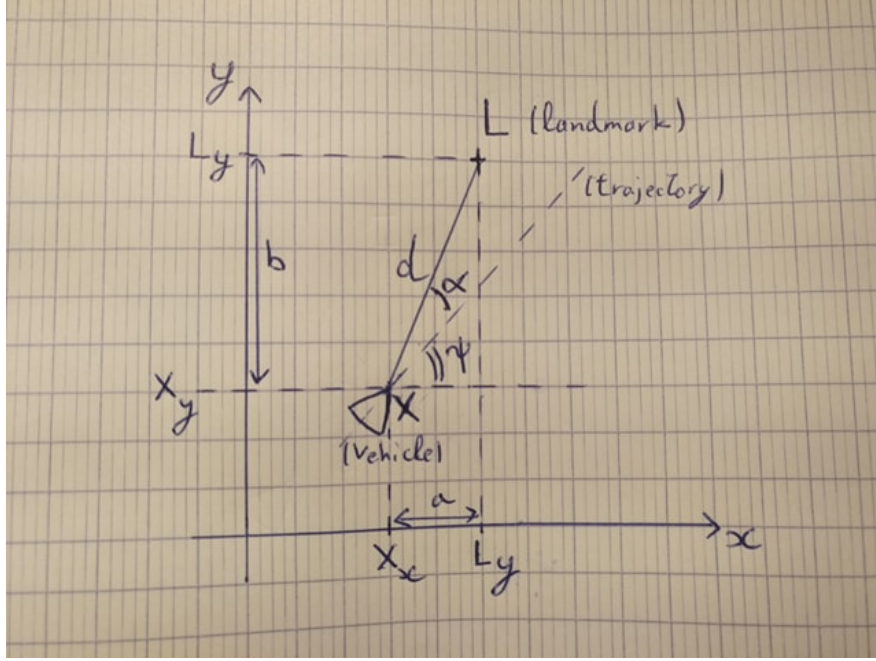 y
L (landmark)
Ly
(trajectory)
b
d
α
ψ
Xy
X
(vehicle)
a
x
Xx
Ly